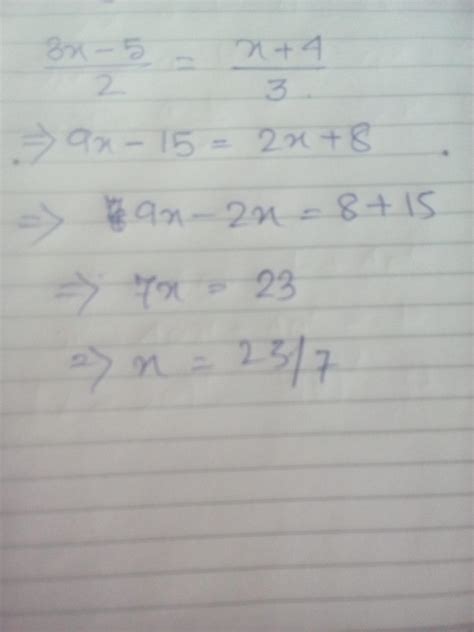 3x-5/2 = x+4/3
⇒ 9x - 15 = 2x + 8
⇒ 9x - 2x = 8 + 15
⇒ 7x = 23
⇒ x = 23/7